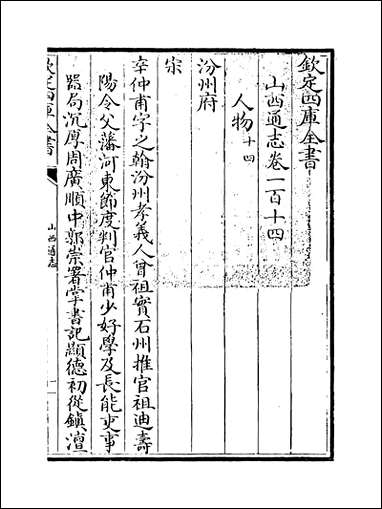 欽定四庫全書
山西通志卷一百十四
人物十四
汾州府
宋
辛仲甫字之翰汾州孝義人曾祖實石州推官祖迪壽
陽令父藩河東節度判官仲甫少好學及長能吏事
器局沉厚周廣順中郭崇署掌書記顯德初從鎮澶
欽定四庫全書
山西通志
一